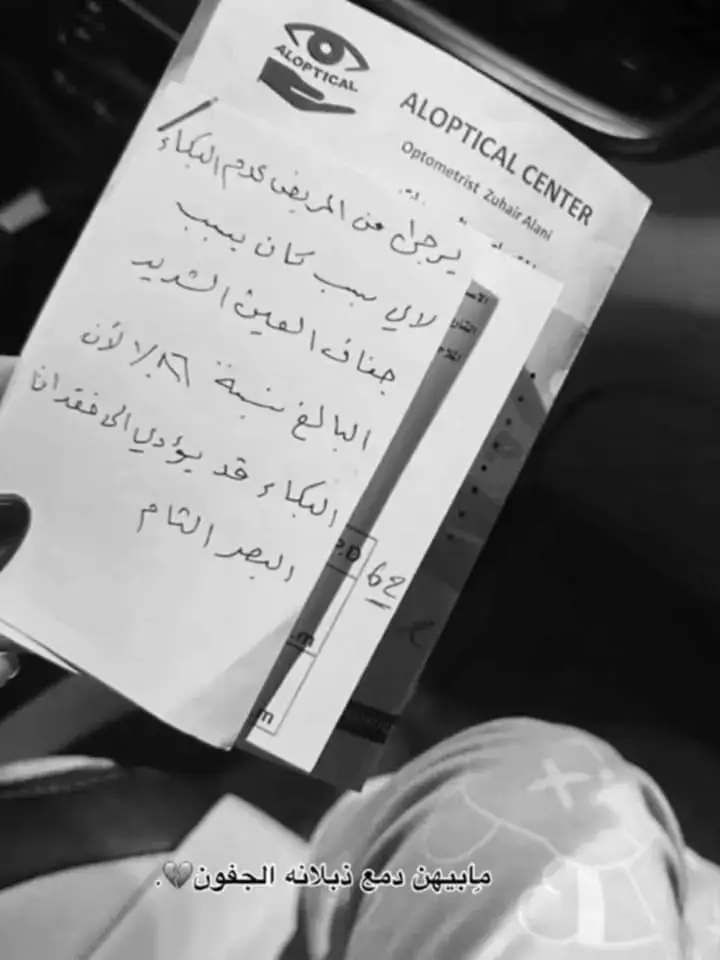 ALOPTICAL
ALOPTICAL CENTER
Optometrist Zuhair Alani
يرجى من المريض عدم البكاء
لاي سبب كان بسبب
جفاف العين الشديد
البالغ نسبة ٨٦٪ لأن
البكاء قد يؤدي الى فقدان
البصر التام
P.D
62
m
m
مابيهن دمع ذبلانه الجفون💔.